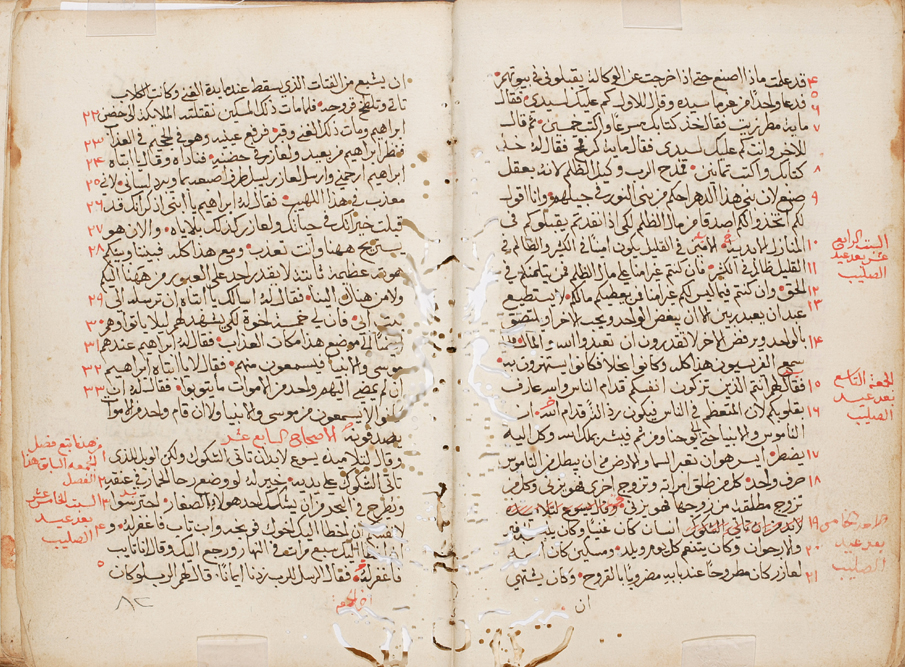 ٤ قد علمت ماذا اصنع حتي اذا اخرجت عن الوكالة يقبلوني في بيوتهم
٥ فدعا واحدًا من غرما سيده وقال للاول كم عليك لسيدي فقال
٦ ماية مطر زيت فقال خذ كتابك بسرعا واكتب خمسين ثم قال
٧ للاخر وانت كم عليك لسيدي فقال ماية كر قمح فقال له خذ
٨ كتابك واكتب ثمانين فمدح الرب وكيل الظلم لانه بعقل
٩ صنع لان بني هذا الدهر احكم من بني النور في جيلهم وانا اقول
لكم اتخذوا لكم اصدقا من مال الظلم لكي اذا نفدتم يقبلوكم في
١٠ المنازل الابدية الامين في القليل يكون امينًا في الكثير والظالم في
١١ القليل ظالم في الكثير فان كنتم غير امنا في مال الظلم فمن يتامنكم في
١٢ الحق وان كنتم فيما ليس لكم غير امنا فمن يعطيكم مالكم لا يستطيع
١٣ عبد ان يعبد ربين الا ان يبغض الواحد ويحب الاخر او يلتصق
١٤ بالواحد ويرفض الاخر لا تقدرون ان تعبدوا الله والمال فلما
سمع الفريسيون هذا كله وكانوا بخلا فكانوا يستهزون به
١٥ فقال لهم انتم الذين تزكون انفسكم قدام الناس والله عارف
١٦ بقلوبكم لان المتعظم في الناس فيكون رذالة قدام الله ان
الناموس والانبيا حتي يوحنا ومن ثم فيبشر بملك الله وكل اليه
١٧ يضطر ايسر هو ان تعبر السما والارض من ان يبطل من الناموس
١٨ حرف واحد كل من طلق امراته وتزوج اخري فهو يزني وكل من
تزوج مطلقة من زوجها فهو يزني
١٩ انسان كان غنيًا وكان يلبس
٢٠ والارجوان وكان يتنعم كل يوم ومسكين كان اسمه
٢١ لعازر كان مطروحًا عند بابه مضروبًا بالقروح وكان يشتهي
ان
السبت الرابع
عشر بعد عيد
الصليب
الجمعه التاسع
بعد عيد
الصليب
الاحد الخامس
بعد عيد
الصليب
ان يشبع من الفتات الذي يسقط عند مايدة الغني وكانت الكلاب
٢٢ تاتي وتلحس قروحه فلما مات ذلك المسكين نقلته الملايكة الي حضن
ابراهيم ومات ذلك الغني وقبر فرفع عينيه وهو في الجحيم في العذاب
٢٣ فنظر ابراهيم من بعيد ولعازر في حضنه فناداه وقال يا ابتاه
٢٤ ابراهيم ارحمني وارسل لعازر ليبل طرف اصبعه بما ويبرد لساني لاني
٢٥ معذب في هذا اللهيب فقال له ابراهيم يا ابني اذكر انك قد
٢٦ قبلت خيراتك في حياتك ولعازر كذلك بلاياه والان هو
٢٧ يستريح ههنا وانت تعذب ومع هذا كله فبيننا وبينكم
٢٨ هوة عظيمة ثابتة لا يقدر احد علي العبور من ههنا اليكم
٢٩ ولا من هناك الينا فقال له اسالك يا ابتاه ان ترسله الي
٣٠ بيت ابي فان لي خمسة اخوة لكي يشهد لهم ليلا ياتوا وهم
٣١ ايضًا الي موضع هذا مكان العذاب فقال له ابراهيم عندهم
٣٢ موسي والانبيا فيسمعون منهم فقال لا يا ابتاه ابراهيم
٣٣ ان لم يمضي اليهم واحد من الاموات ما يتوبوا فقال له ان
كانوا لا يسمعون من موسي والانبيا ولا ان قام واحد من الاموات
يصدقونه الاصحاح السابع عشر
وقال لتلاميذه يسوع لا بد ان تاتي الشكوك ولكن الويل للذي
٢ تاتي الشكوك علي يديه خير له لو وضع رحا الحمار في عنقه
٣ ويطرح في البحر من ان يشكك احد هولاي الصغار احترسوا
لانفسكم ان اخطا اليك اخوك فوبخه وان تاب فاغفر له
٤ اليك سبع مرات في النهار ورجع اليك وقال انا تايب
٥ فاغفر له فقال الرسل للرب زدنا ايمانًا قال لهم الرب لو كان
من هنا تبع فصل
الجمعه السابقه هنا
الفصل
السبت الخامس عشر
بعد عيد
الصليب
الجمعة
٨٢